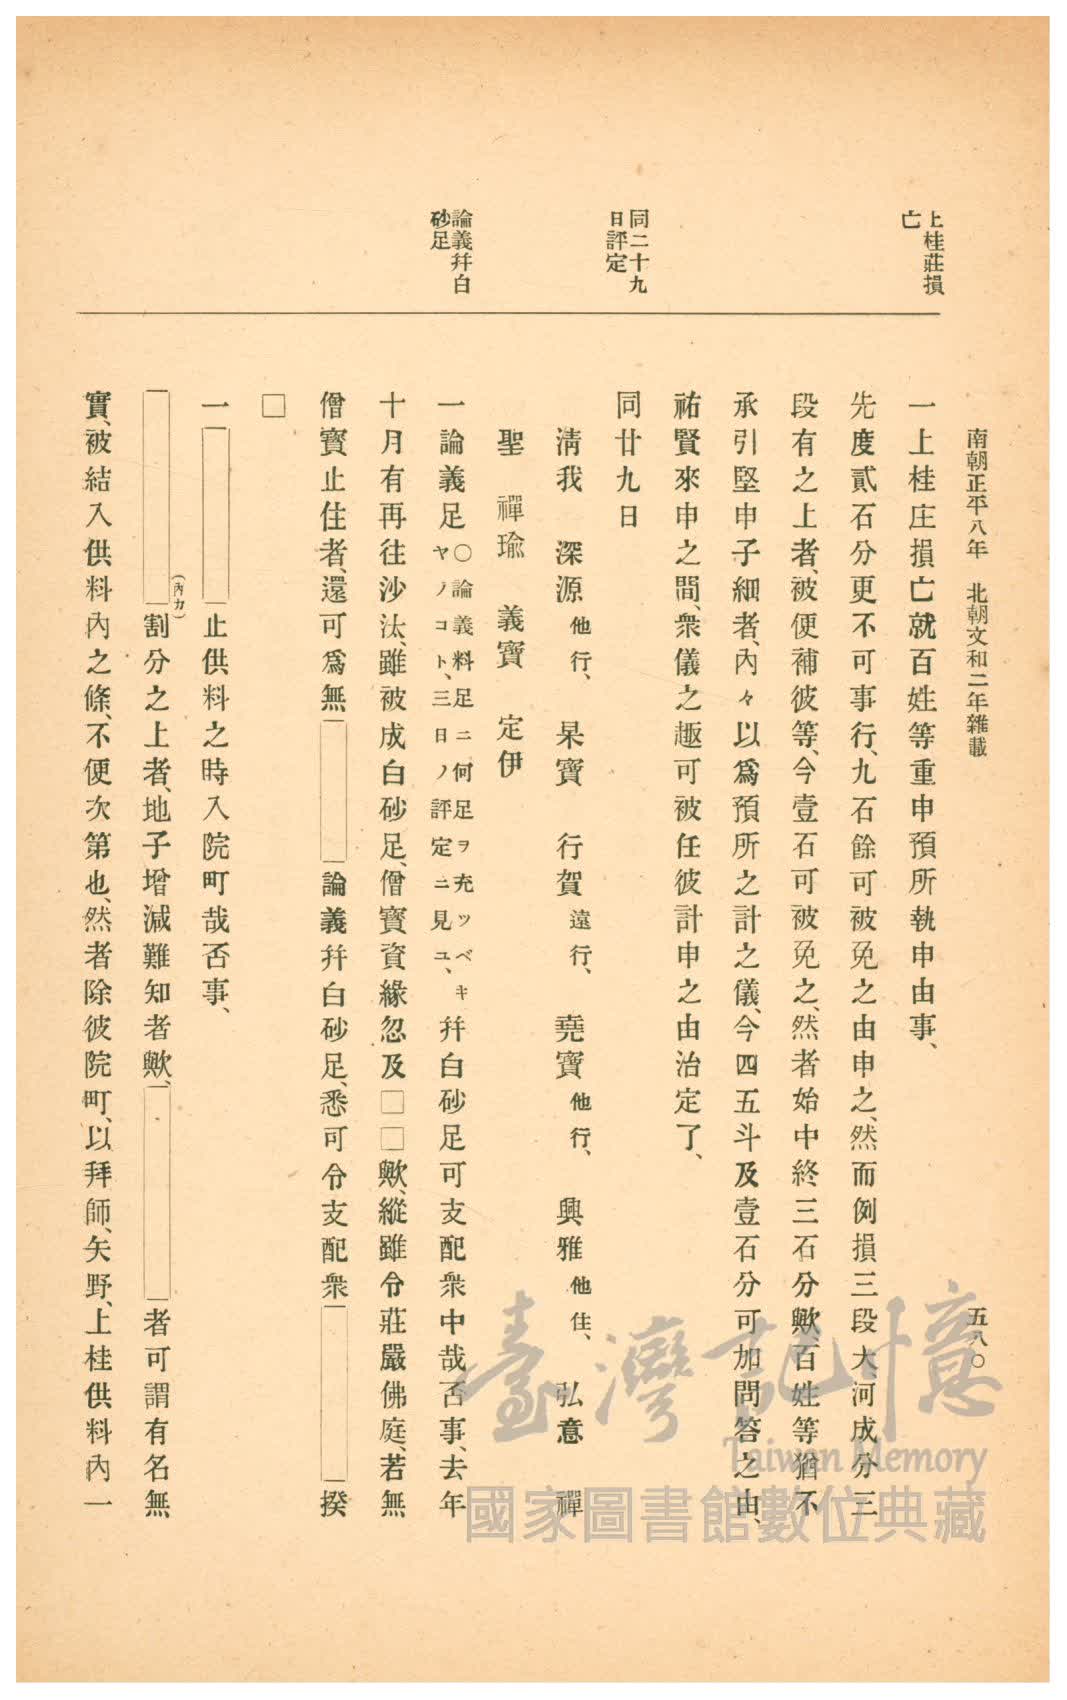 南朝正平八年　北朝文和二年雜載
五八〇
上桂莊損
亡
一上桂庄損亡就百姓等重申預所執申由事、
先度貳石分更不可事行、九石餘可被免之由申之、然而例損三段大、河成分三
段有之上者、被便補彼等、今壹石可被免之、然者始中終三石分歟、百姓等猶不
承引堅申子細者、內々以爲預所之計之儀、今四五斗及壹石分可加問答之由、
祐賢來申之間、衆儀之趣可被任彼計申之由治定了、
同二十九
日評定
同廿九日
淸我　深源他行、　杲寶　行賀遠行、　堯寶他行、　興雅他住、　弘意　禪
聖　禪瑜　義寶　定伊
論義幷白
砂足
一論義足○論義料足ニ何足ヲ充ツベキヤノコト、三日ノ評定ニ見ユ、幷白砂足可支配衆中哉否事、去年
十月有再往沙汰、雖被成白砂足、僧寶資緣忽及□□歟、縱雖令莊嚴佛庭、若無
僧寶止住者、還可爲無　　　論義幷白砂足、悉可令支配衆　　　揆
□
一　　　止供料之時入院町哉否事、
（內カ）
割分之上者、地子增減難知者歟、　　　者可謂有名無
實、被結入供料內之條、不便次第也、然者除彼院町、以拜師、矢野、上桂供料內一
臺灣記憶
Taiwan Memory
國家圖書館數位典藏